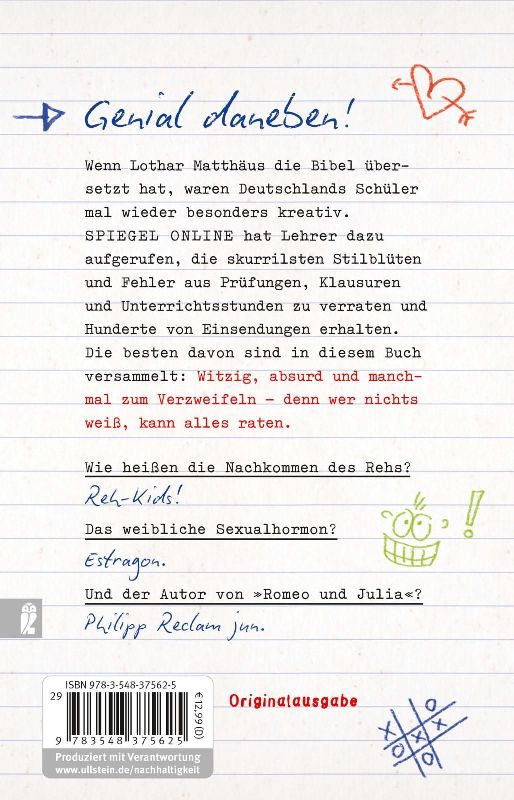 Genial daneben!
Wenn Lothar Matthäus die Bibel über-
setzt hat, waren Deutschlands Schüler
mal wieder besonders kreativ.
SPIEGEL ONLINE hat Lehrer dazu
aufgerufen, die skurrilsten Stilblüten
und Fehler aus Prüfungen, Klausuren
und Unterrichtsstunden zu verraten und
Hunderte von Einsendungen erhalten.
Die besten davon sind in diesem Buch
versammelt: Witzig, absurd und manch-
mal zum Verzweifeln – denn wer nichts
weiß, kann alles raten.
Wie heißen die Nachkommen des Rehs?
Reh-Kids!
Das weibliche Sexualhormon?
Estragon.
Und der Autor von »Romeo und Julia«?
Philipp Reclam jun.
ISBN 978-3-548-37562-5
29
€ 12,99 (D)
9 783548 375625
Produziert mit Verantwortung
www.ullstein.de/nachhaltigkeit
Originalausgabe
O
X O X
X X
O O